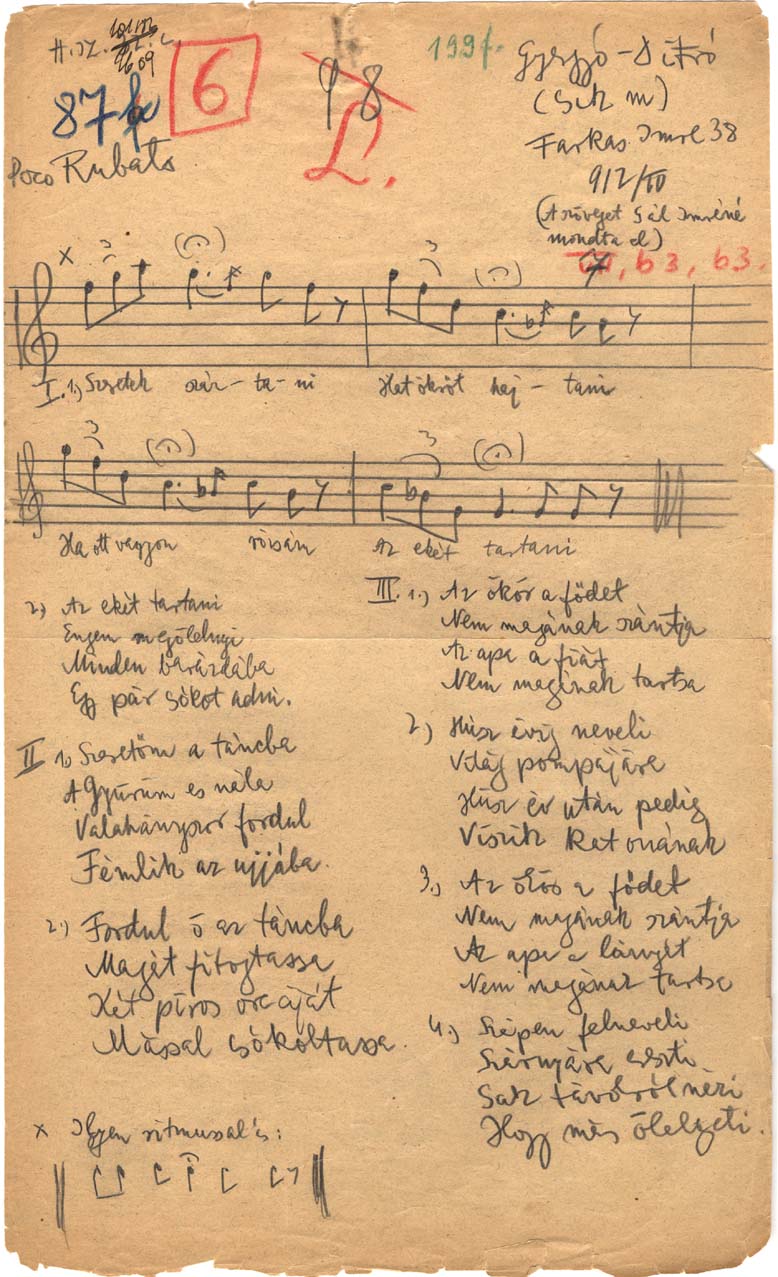 H.
87
6
98
L.
199f.
Gyergyó-Ditró
(Csík m)
Farkas Imre 38
912/IV
(A szöveget Gál Imréné
mondta el)
VII, b3, b3.
Poco Rubato
x
3
3
I. 1.) Szeretek szán-ta-ni Hat ökröt haj-tani
3
3
Ha ott vagyon rózsám Az ekét tartani
2.) Az ekét tartani
Engem megölelnyi
Minden barázdába
Egy pár csókot adni.
II 1.) Szeretőm a táncba
A Gyűrűm es nála
Valahányszor fordul
Fémlik az ujjába.
2.) Fordul ő az táncba
Magát fitogtassa
Két piros orcáját
Mással csókoltassa.
x Ilyen ritmussal is:
III. 1.) Az ökör a fődet
Nem magának szántja
Az apa a fiát
Nem magának tartsa
2.) Húsz évig neveli
Világ pompájára
Húsz év után pedig
Viszik Katonának
3.) Az ökör a födet
Nem magának szántja
Az apa a lányát
Nem magának tartsa
4.) Szépen felneveli
Szárnyára ereszti
Csak távolról nézi
Hogy más ölelgeti.